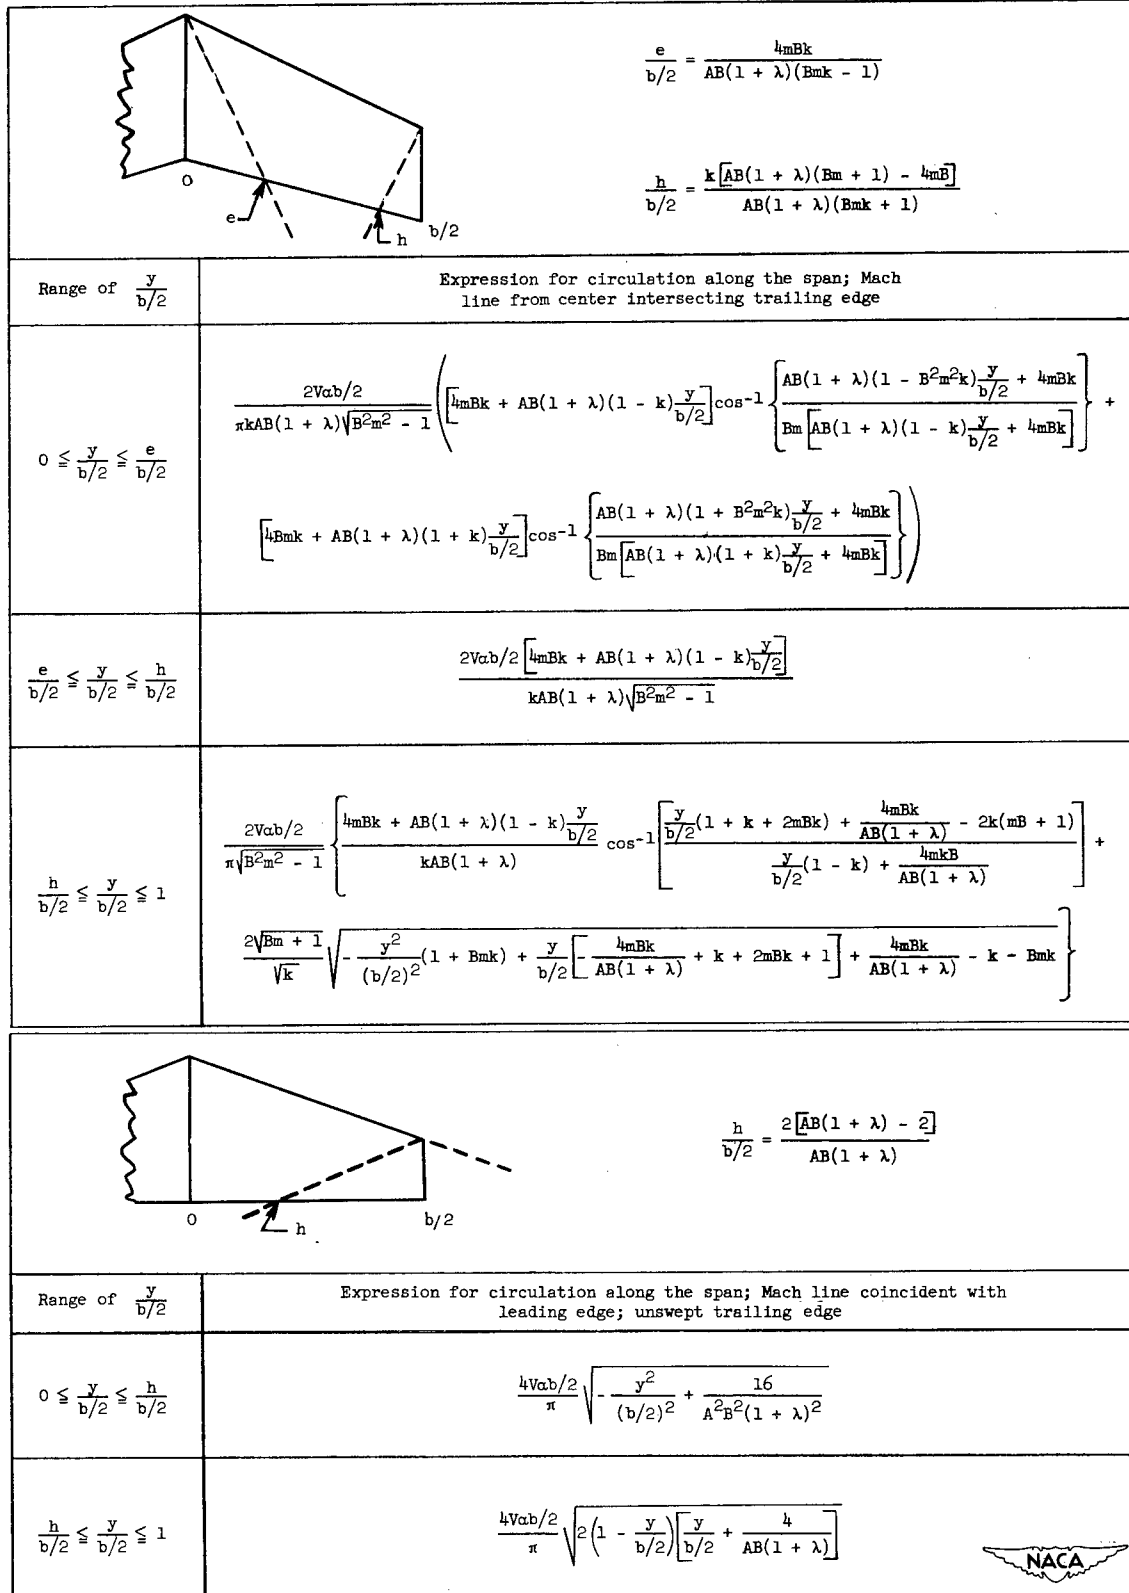 e/(b/2) = 4mBk / AB(1 + λ)(Bmk - 1)
h/(b/2) = k[AB(1 + λ)(Bm + 1) - 4mB] / AB(1 + λ)(Bmk + 1)
0
e
h
b/2
Range of y/(b/2)
Expression for circulation along the span; Mach
line from center intersecting trailing edge
0 ≦ y/(b/2) ≦ e/(b/2)
2Vαb/2 / πkAB(1 + λ)√(B²m² - 1) ([4mBk + AB(1 + λ)(1 - k) y/(b/2)] cos⁻¹ {AB(1 + λ)(1 - B²m²k) y/(b/2) + 4mBk / Bm[AB(1 + λ)(1 - k) y/(b/2) + 4mBk]} +
[4Bmk + AB(1 + λ)(1 + k) y/(b/2)] cos⁻¹ {AB(1 + λ)(1 + B²m²k) y/(b/2) + 4mBk / Bm[AB(1 + λ)(1 + k) y/(b/2) + 4mBk]})
e/(b/2) ≦ y/(b/2) ≦ h/(b/2)
2Vαb/2 [4mBk + AB(1 + λ)(1 - k) y/(b/2)] / kAB(1 + λ)√(B²m² - 1)
h/(b/2) ≦ y/(b/2) ≦ 1
2Vαb/2 / π√(B²m² - 1) {4mBk + AB(1 + λ)(1 - k) y/(b/2) / kAB(1 + λ) cos⁻¹ [y/(b/2) (1 + k + 2mBk) + 4mBk/AB(1 + λ) - 2k(mB + 1) / y/(b/2) (1 - k) + 4mkB/AB(1 + λ)] +
2√(Bm + 1)/√k √(- y²/(b/2)² (1 + Bmk) + y/(b/2) [- 4mBk/AB(1 + λ) + k + 2mBk + 1] + 4mBk/AB(1 + λ) - k - Bmk)}
h/(b/2) = 2[AB(1 + λ) - 2] / AB(1 + λ)
0
h
b/2
Range of y/(b/2)
Expression for circulation along the span; Mach line coincident with
leading edge; unswept trailing edge
0 ≦ y/(b/2) ≦ h/(b/2)
4Vαb/2 / π √(- y²/(b/2)² + 16/A²B²(1 + λ)²)
h/(b/2) ≦ y/(b/2) ≦ 1
4Vαb/2 / π √(2(1 - y/(b/2))[y/(b/2) + 4/AB(1 + λ)])
NACA